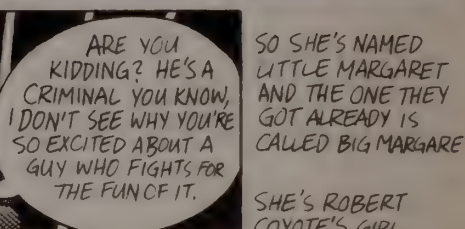 ARE YOU
KIDDING? HE'S A
CRIMINAL YOU KNOW,
I DON'T SEE WHY YOU'RE
SO EXCITED ABOUT A
GUY WHO FIGHTS FOR
THE FUN OF IT.
SO SHE'S NAMED
LITTLE MARGARET
AND THE ONE THEY
GOT ALREADY IS
CALLED BIG MARGARE
SHE'S ROBERT
COYOTE'S GIRL